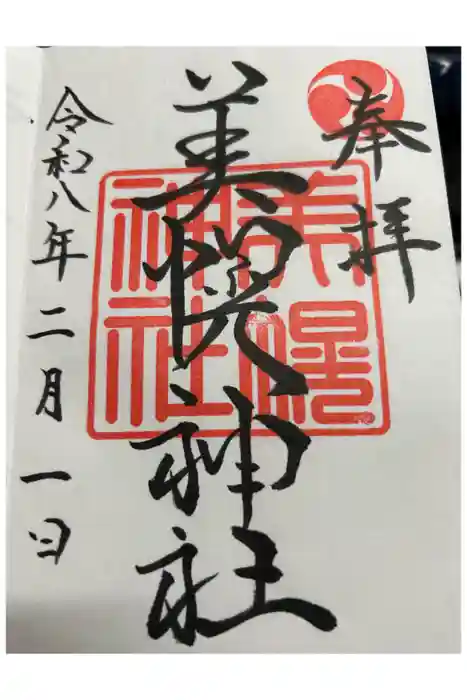 奉拝
美幌神社
美幌
神社
令和八年二月一日